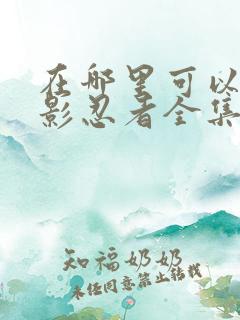 在哪里可以
影忍者全集
知福奶奶
未经同意禁止转载